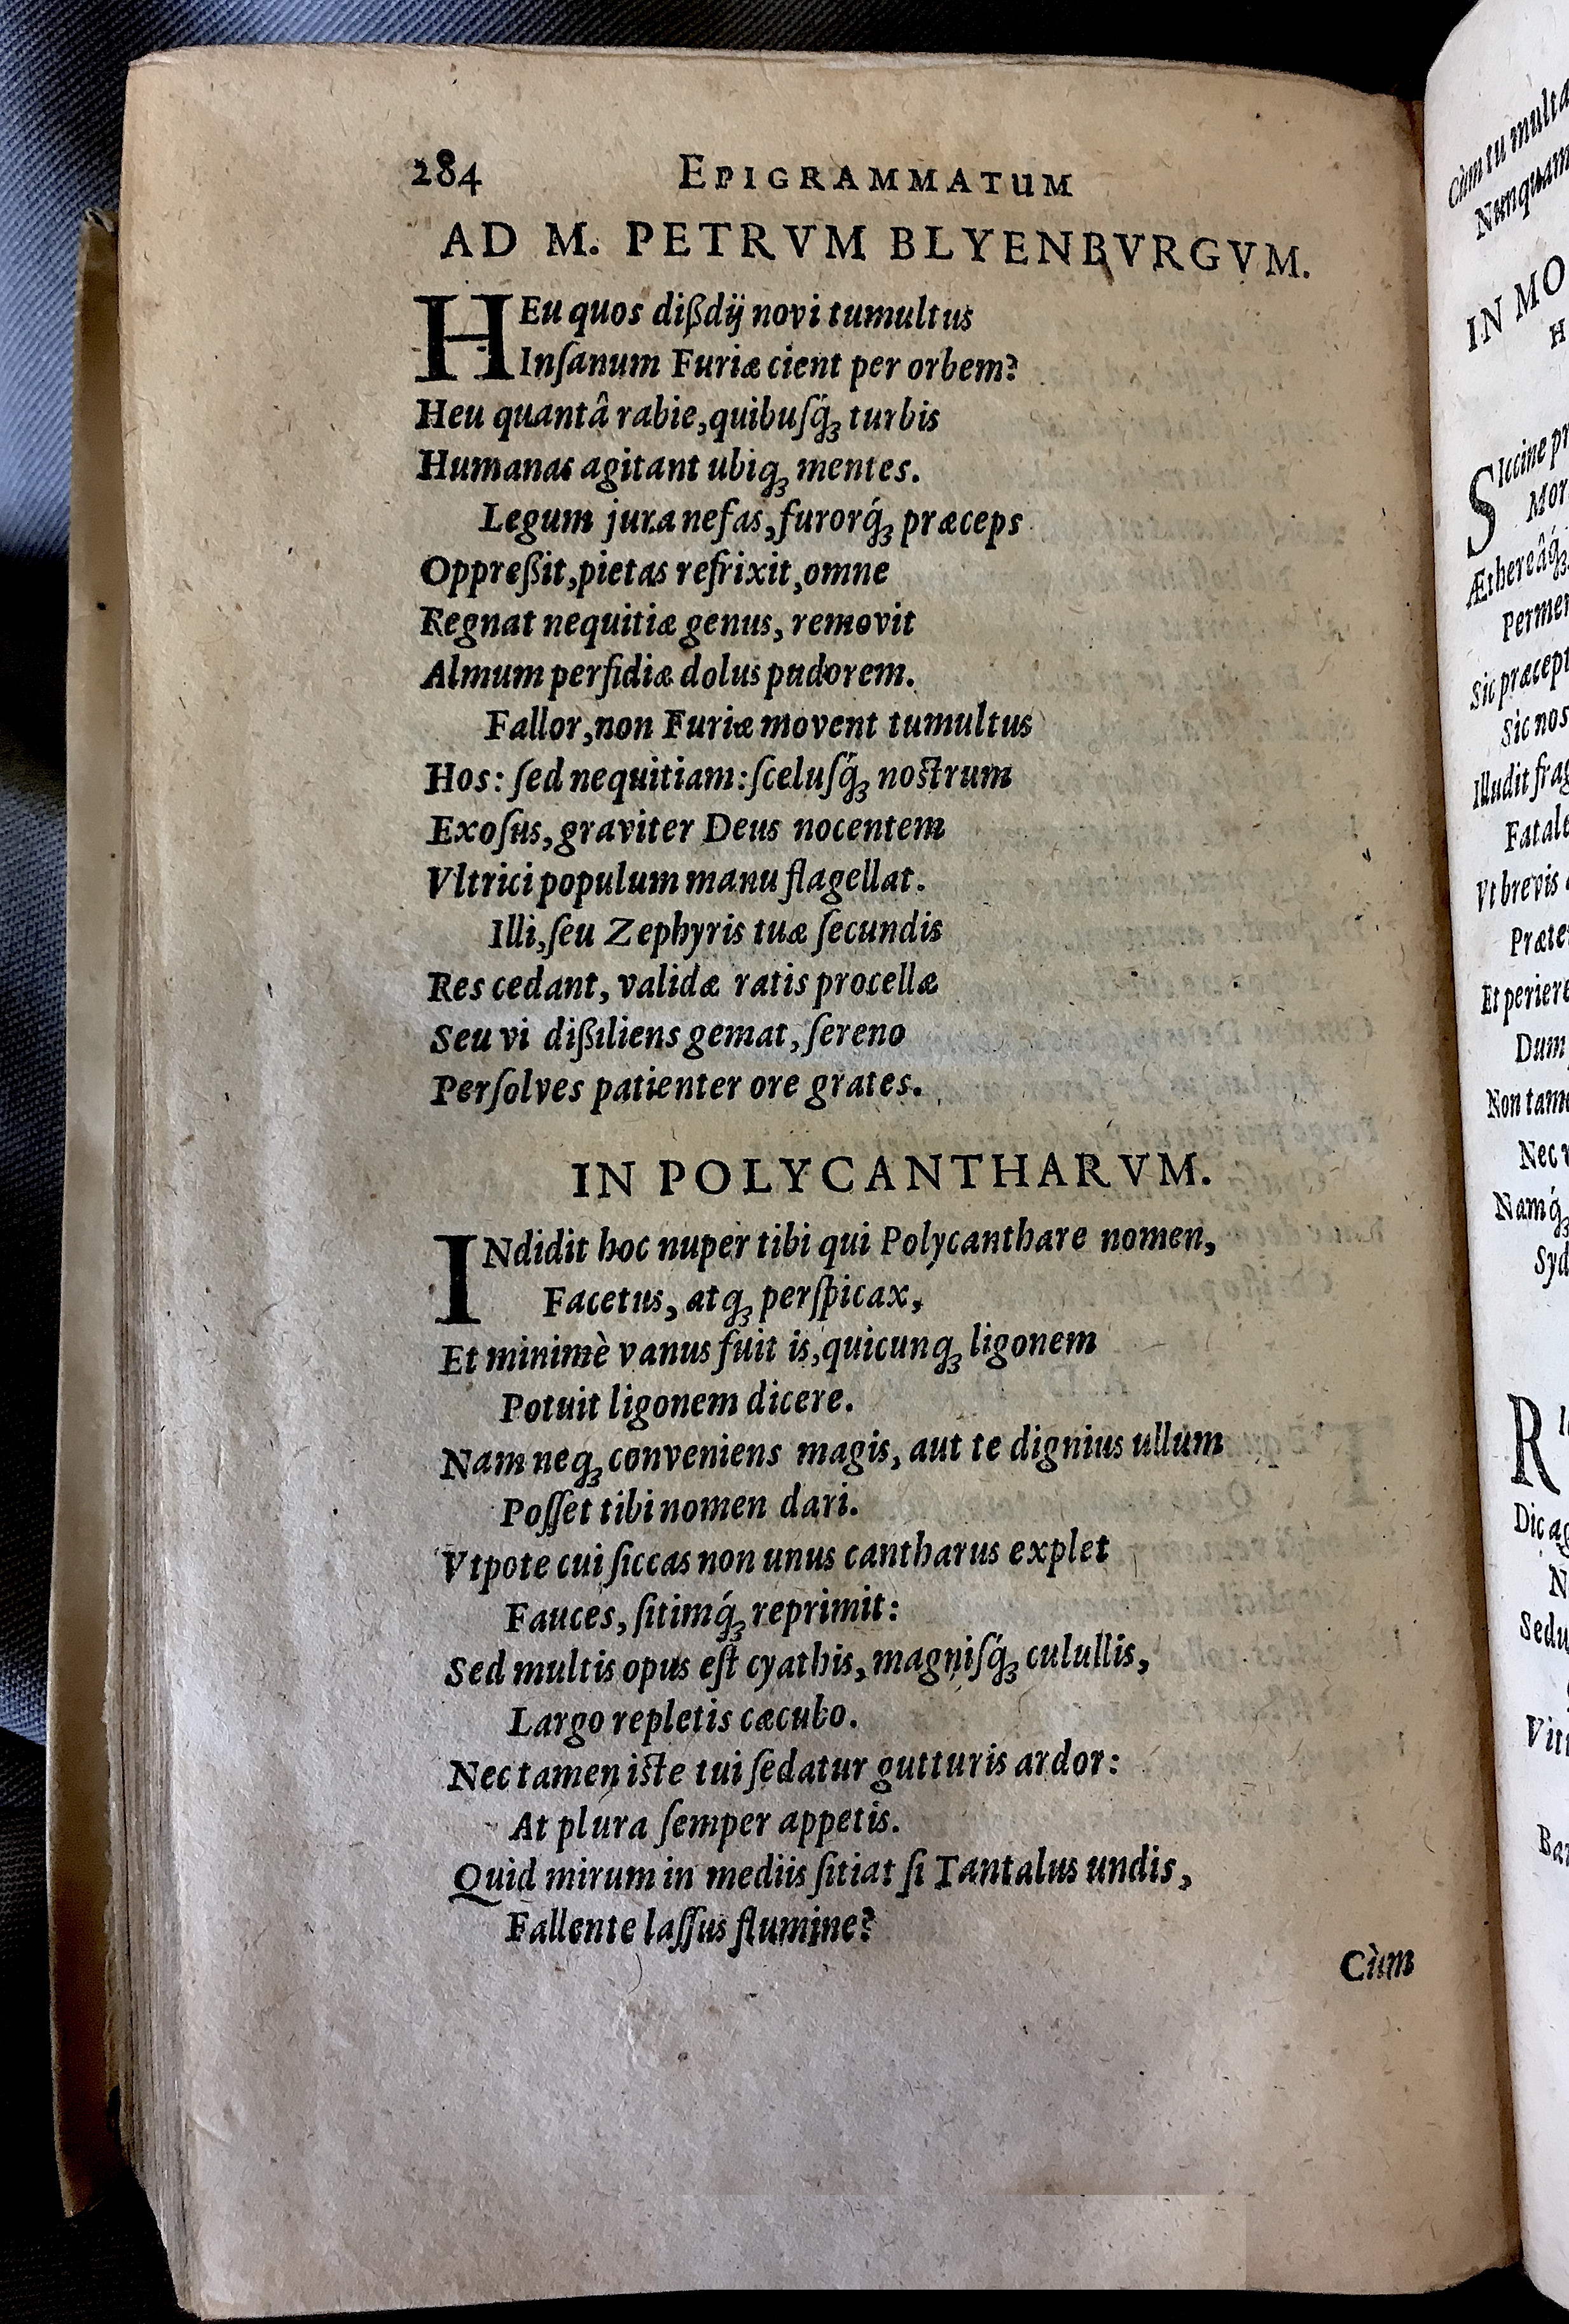 284 EPIGRAMMATUM
AD M. PETRVM BLYENBVRGVM.
HEu quos dißdij novi tumultus
Inſanum Furiæ cient per orbem?
Heu quantâ rabie, quibuſq́ꝫ turbis
Humanas agitant ubiqꝫ mentes.
Legum jura nefas, furorq́ꝫ præceps
Oppreßit, pietas refrixit, omne
Regnat nequitiæ genus, removit
Almum perfidiæ dolus pudorem.
Fallor, non Furiæ movent tumultus
Hos: ſed nequitiam: ſceluſq́ꝫ noſtrum
Exoſus, graviter Deus nocentem
Vltrici populum manu flagellat.
Illi, ſeu Zephyris tuæ ſecundis
Res cedant, validæ ratis procellæ
Seu vi dißiliens gemat, ſereno
Perſolves patienter ore grates.
IN POLYCANTHARVM.
INdidit hoc nuper tibi qui Polycanthare nomen,
Facetus, atqꝫ perſpicax,
Et minimè vanus fuit is, quicunqꝫ ligonem
Potuit ligonem dicere.
Nam neqꝫ conveniens magis, aut te dignius ullum
Poſſet tibi nomen dari.
Vtpote cui ſiccas non unus cantharus explet
Fauces, ſitimq́ꝫ reprimit:
Sed multis opus eſt cyathis, magniſq́ꝫ culullis,
Largo repletis cæcubo.
Nec tamen iſte tui ſedatur gutturis ardor:
At plura ſemper appetis.
Quid mirum in mediis ſitiat ſi Tantalus undis,
Fallente laſſus flumine?
Cùm
Cùm tu multa
Nunquam
IN MO
H
Siccine pr
Mor
Æthereâq́ꝫ
Permen
Sic præcept
Sic nos
Illudit frag
Fatale
Vt brevis
Præte
Et periere
Dum
Non tam
Nec v
Namq́ꝫ
Syd
R
Dic ag
N
Sedu
Viti
Bar